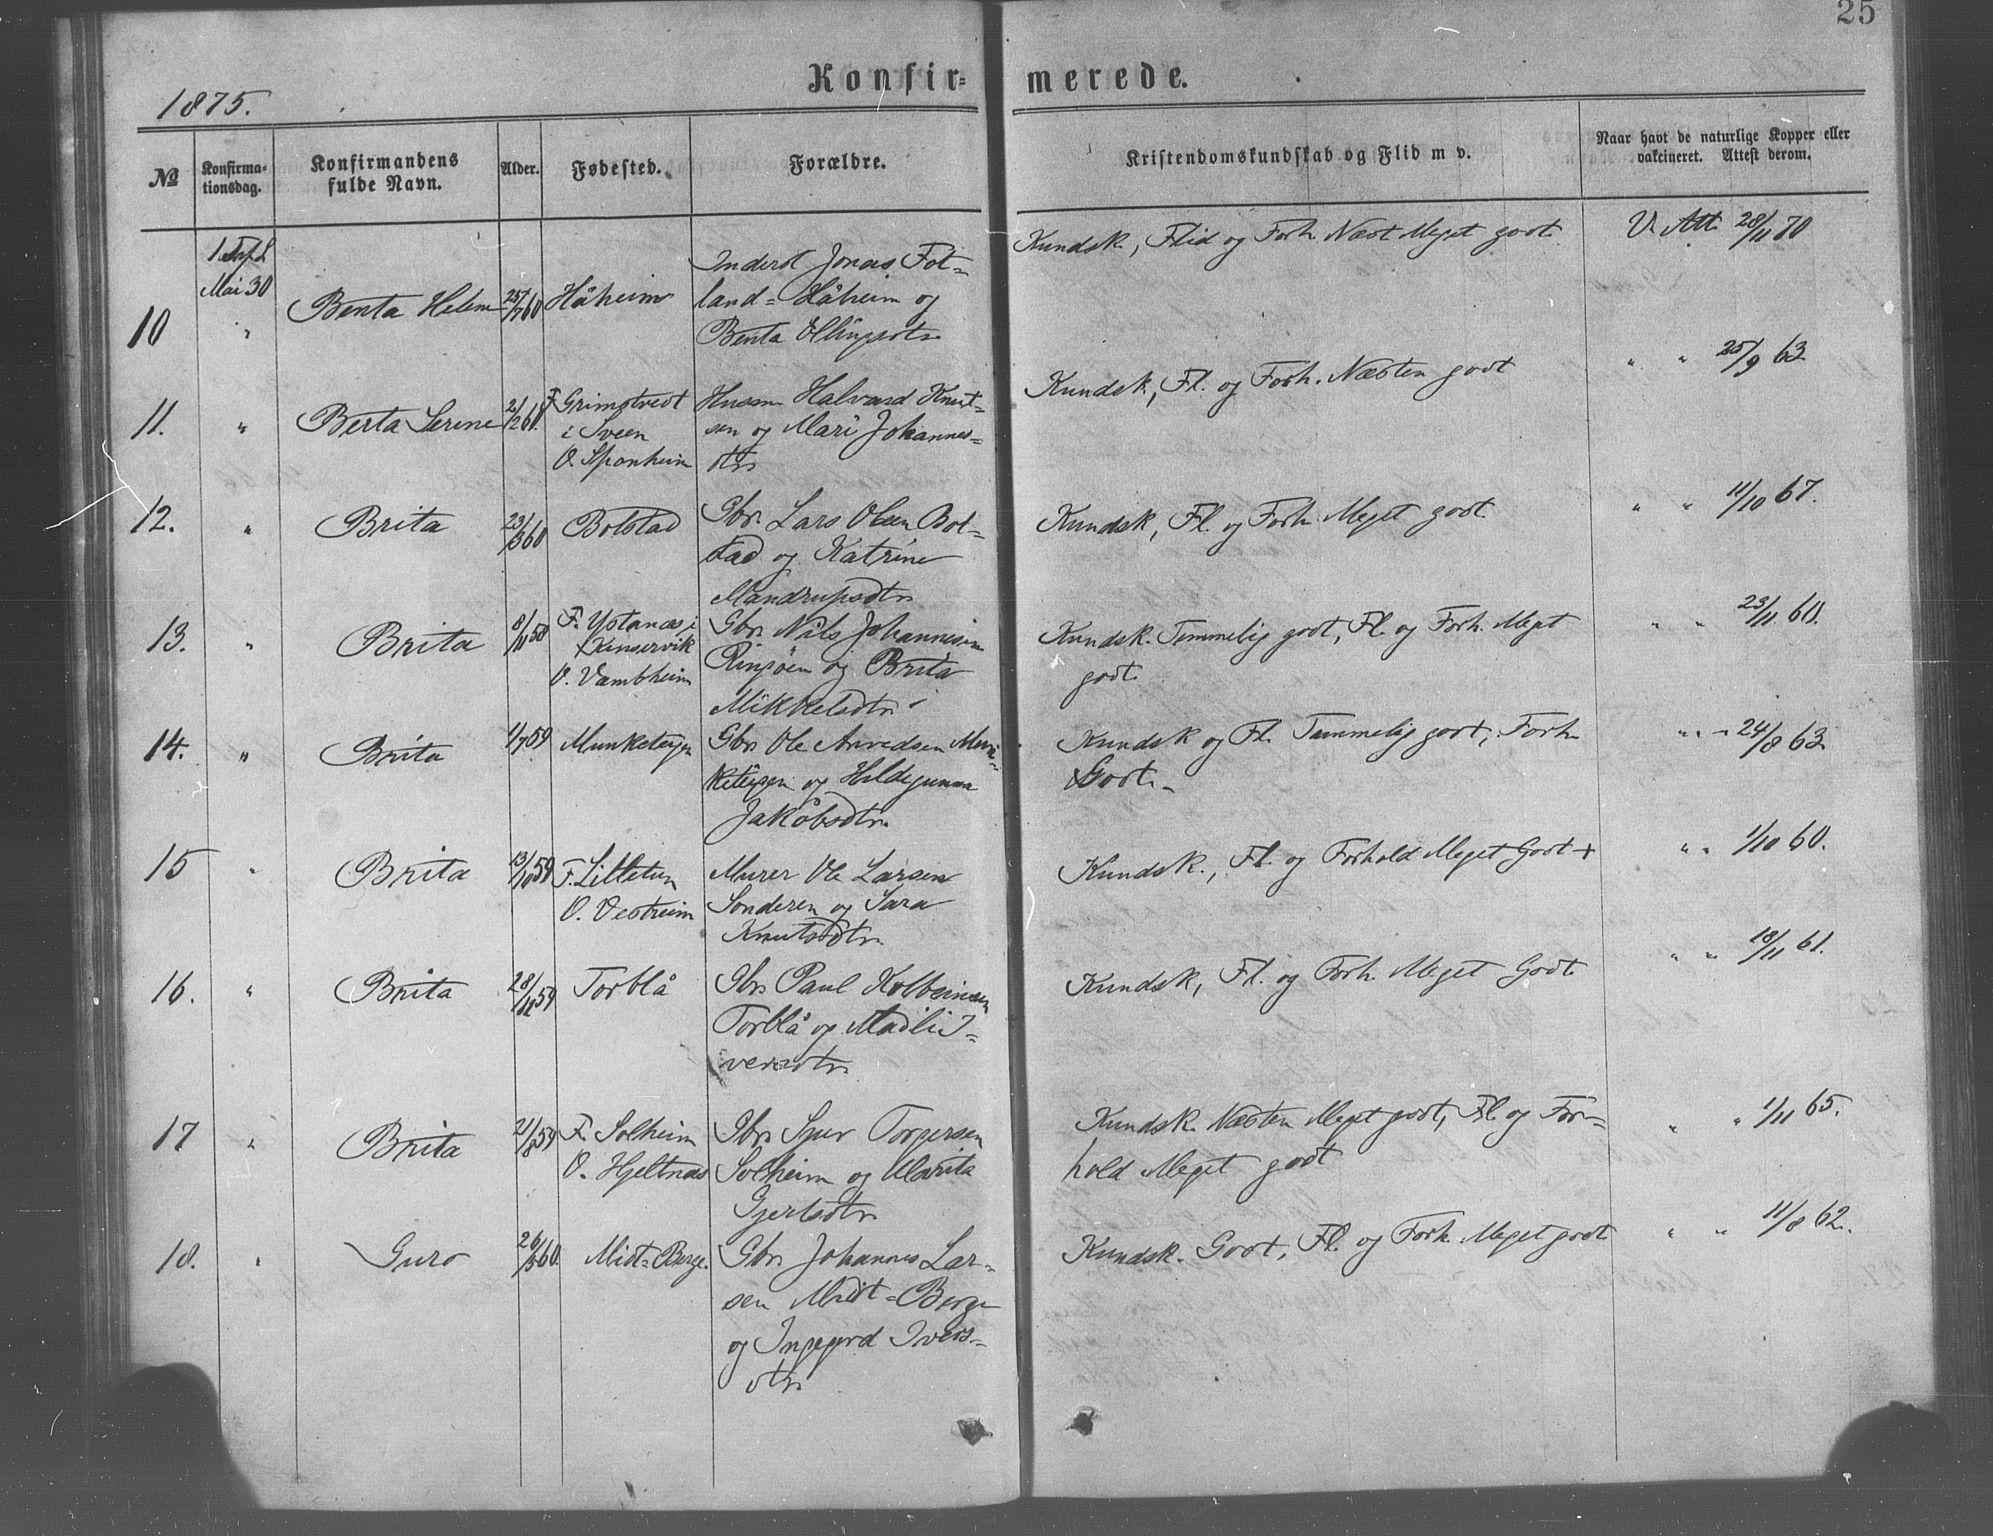 25
Konfirmerede.
1875.
№
Konfirma-
tionsdag.
Konfirmandens
fulde Navn.
Alder.
Fødested.
Forældre.
Kristendomskundskab og Flid m v.
Naar havt de naturlige Kopper eller
vakcineret. Attest derom.
Mai 30
10 " Benta Helene 25/7 60 Håheim
Inderst Jonas Fot-
land-Håheim og
Benta Ellingsdtr.
Kundsk, Flid og Forh. Næst Meget godt.
V. Att. 28/11 70
11. " Berta Serine 2/2 60.
F. Grimstvedt
i Sveen
O. Sponheim
Husm Halvard Knut-
sen og Mari Johannes-
dtr.
Kundsk, Fl. og Forh. Næsten godt
" " 25/9 63.
12. " Brita 23/3 60 Bolstad
Gbr. Lars Olsen Bol-
stad og Katrine
Mandrupsdtr.
Kundsk, Fl. og Forh. Meget godt.
" " 11/10 67.
13. " Brita 8/11 58
F. Ystanæs i
Kinservik
O. Vambheim
Gbr. Nils Johannesen
Ringøen og Brita
Mikkelsdtr.
Kundsk. Temmelig godt, Fl. og Forh. Meget
godt.
" " 23/11 60.
14. " Brita 1/7 59 Munketeigen
Gbr. Ole Arvedsen Mun-
keteigen og Hildegunna
Jakobsdtr.
Kundsk og Fl. Temmelig godt, Forh.
Godt.
" " 24/8 63.
15 " Brita 13/10 59
F. Lilletun
O. Vestreim
Murer Ole Larsen
Sonderen og Sara
Knutsdtr.
Kundsk., Fl. og Forhold Meget Godt +
" " 1/10 60.
16. " Brita 28/12 59 Torblå
Gbr. Paul Kolbeinsen
Torblå og Madli I-
versdtr.
Kundsk, Fl. og Forh. Meget Godt.
" " 18/11 61.
17 " Brita 21/8 59
F. Solheim
O. Hjeltnæs
Gbr. Sjur Torgersen
Solheim og Marita
Gjertsdtr.
Kundsk. Næsten Meget godt, Fl. og For-
hold Meget godt
" " 1/11 65.
18. " Guro 26/3 60. Midt-Berge.
Gbr. Johannes Lar-
sen Midt-Berge
og Ingegerd Ivers-
dtr.
Kundsk. Godt, Fl. og Forh. Meget godt
" " 11/8 62.